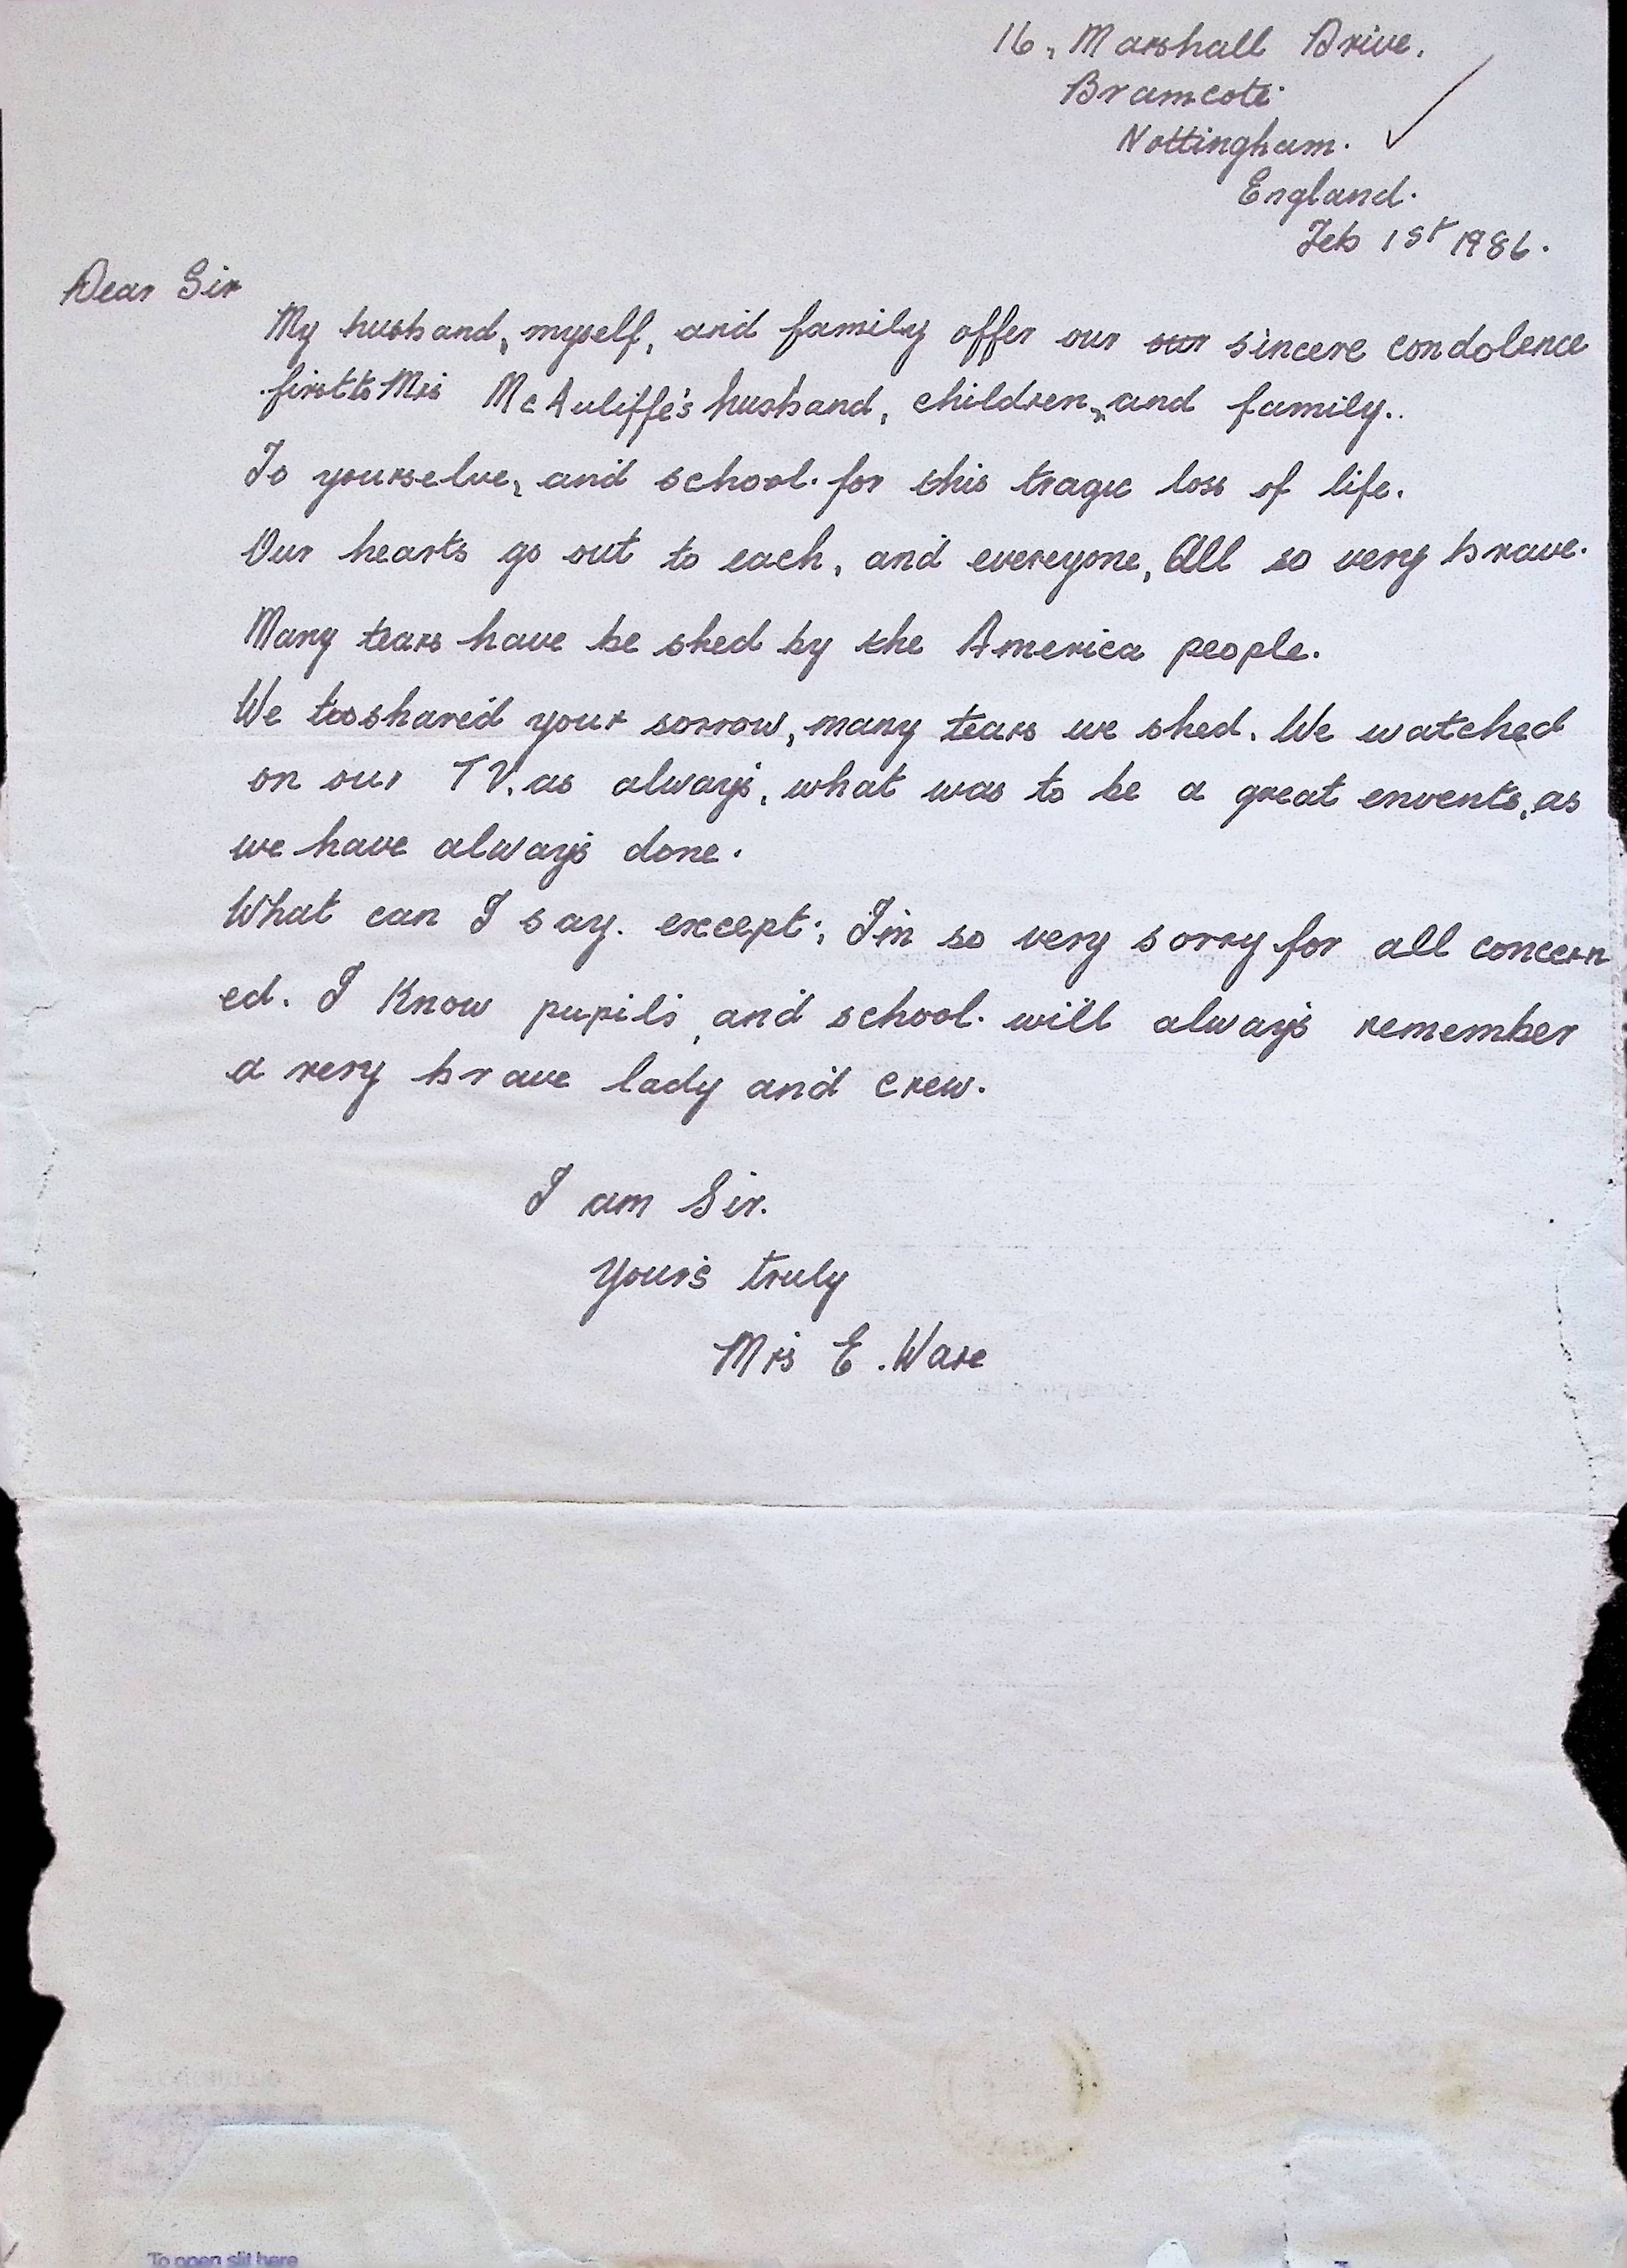 16, Marshall Drive.
Bramcote.
Nottingham.
England.
Feb 1st 1986.
Dear Sir
My husband, myself, and family offer our our sincere condolence
first to Mrs McAuliffe's husband, children, and family..
To yourselve, and school. for this tragic loss of life.
Our hearts go out to each, and everyone, All so very brave.
Many tears have be shed by the America people.
We too shared your sorrow, many tears we shed. We watched
on our TV. as always, what was to be a great envents, as
we have always done.
What can I say. except; I'm so very sorry for all concern
ed. I Know pupils, and school. will always remember
a very brave lady and crew.
I am Sir.
Yours truly
Mrs E. Ware
To open slit here